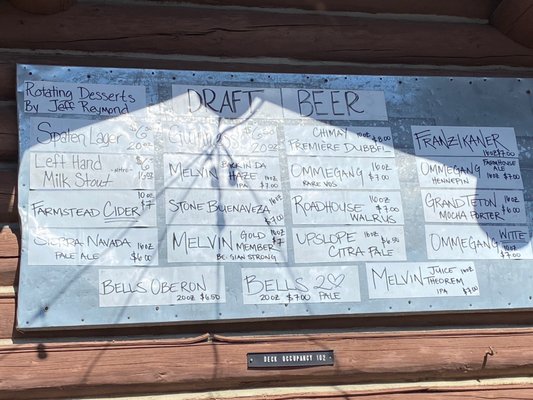 Rotating Desserts
By Jeff Reymond
DRAFT BEER
Spaten Lager $6
20oz
Left Hand $6
Milk Stout -NITRO- 16oz
FARMSTEAD CIDER 10oz $7
SIERRA NAVADA 16oz
PALE ALE $6
GUINNESS $6
20oz
MELVIN BACK IN DA 16oz
HAZE $7.00
IPA
STONE BUENAVEZA 16oz
$7.00
MELVIN GOLD 16oz
MEMBER $7
BELGIAN STRONG
CHIMAY 10oz $8.00
PREMIÈRE DUBBEL
OMMEGANG 16oz
RARE VOS $7.00
ROADHOUSE 16oz
WALRUS $7.00
UPSLOPE 16oz $6.50
CITRA PALE
FRANZIKANER
16oz $7.00
OMMEGANG FARMHOUSE
ALE
HENNEPIN 16oz $7.00
GRAND TETON 16oz
MOCHA PORTER $6.00
OMMEGANG WITTE
16oz $7.00
BELLS OBERON
20oz $6.50
BELLS 2♡
20oz $7.00 PALE
MELVIN JUICE 16oz
THEOREM $7.00
IPA
DECK OCCUPANCY 102